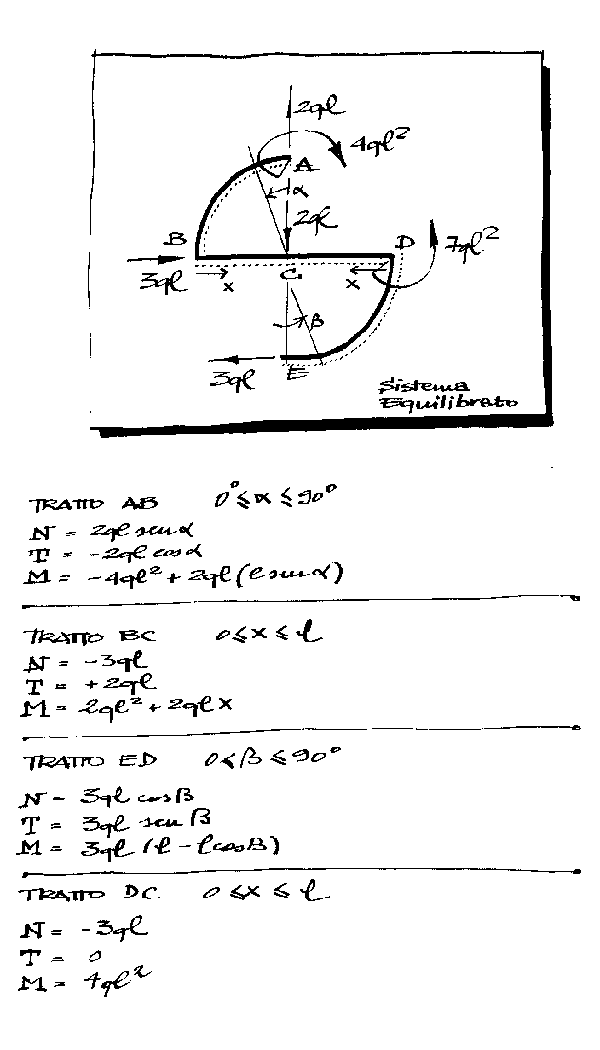 2ql
4ql²
A
α
2ql
B
D
7ql²
3ql
x
C
x
β
3ql
E
Sistema
Equilibrato
TRATTO AB 0° ≤ α ≤ 90°
N = 2ql sen α
T = -2ql cos α
M = -4ql² + 2ql (l sen α)
TRATTO BC 0 ≤ x ≤ l
N = -3ql
T = +2ql
M = 2ql² + 2ql x
TRATTO ED 0 ≤ β ≤ 90°
N = 3ql cos β
T = 3ql sen β
M = 3ql (l - l cos β)
TRATTO DC 0 ≤ x ≤ l
N = -3ql
T = 0
M = 4ql²